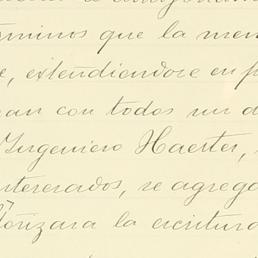 minos que la men
e, extendiendose en p
an con todos un d
Ingeniero Haerter,
ntererados, se agrega
torizara la escritura